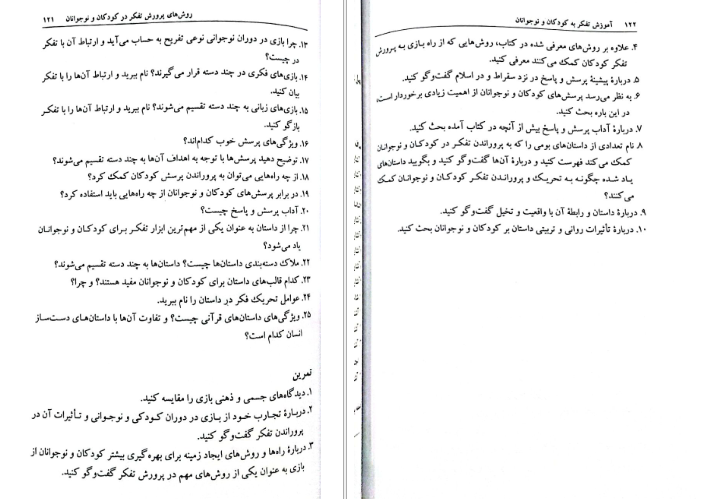 روش‌های پرورش تفکر در کودکان و نوجوانان ۱۲۱
۱۳. چرا بازی در دوران نوجوانی نوعی تفریح به حساب می‌آید و ارتباط آن با تفکر
در چیست؟
۱۴. بازی‌های فکری در چند دسته قرار می‌گیرند؟ نام ببرید و ارتباط آن‌ها را با تفکر
بیان کنید.
۱۵. بازی‌های زبانی به چند دسته تقسیم می‌شوند؟ نام ببرید و ارتباط آن‌ها را با تفکر
بازگو کنید.
۱۶. ویژگی‌های پرسش خوب کدام‌اند؟
۱۷. توضیح دهید پرسش‌ها با توجه به اهداف آن‌ها به چند دسته تقسیم می‌شوند؟
۱۸. از چه راه‌هایی می‌توان به پروراندن پرسش کودکان کمک کرد؟
۱۹. در برابر پرسش‌های کودکان و نوجوانان از چه راه‌هایی باید استفاده کرد؟
۲۰. آداب پرسش و پاسخ چیست؟
۲۱. چرا از داستان به عنوان یکی از مهم‌ترین ابزار تفکر برای کودکان و نوجوانان
یاد می‌شود؟
۲۲. ملاک دسته‌بندی داستان‌ها چیست؟ داستان‌ها به چند دسته تقسیم می‌شوند؟
۲۳. کدام قالب‌های داستان برای کودکان و نوجوانان مفید هستند؟ و چرا؟
۲۴. عوامل تحریک فکر در داستان را نام ببرید.
۲۵. ویژگی‌های داستان‌های قرآنی چیست؟ و تفاوت آن‌ها با داستان‌های دست‌ساز
انسان کدام است؟
تمرین
۱. دیدگاه‌های جسمی و ذهنی بازی را مقایسه کنید.
۲. دربارهٔ تجارب خود از بازی در دوران کودکی و نوجوانی و تأثیرات آن در
پروراندن تفکر گفت‌وگو کنید.
۳. دربارهٔ راه‌ها و روش‌های ایجاد زمینه برای بهره‌گیری بیشتر کودکان و نوجوانان از
بازی به عنوان یکی از روش‌های مهم در پرورش تفکر گفت‌وگو کنید.
۱۲۲ آموزش تفکر به کودکان و نوجوانان
۴. علاوه بر روش‌های معرفی شده در کتاب، روش‌هایی که از راه بازی به پرورش
تفکر کودکان کمک می‌کنند معرفی کنید.
۵. دربارهٔ پیشینهٔ پرسش و پاسخ در نزد سقراط و در اسلام گفت‌وگو کنید.
۶. به نظر می‌رسد پرسش‌های کودکان و نوجوانان از اهمیت زیادی برخوردار است،
در این باره بحث کنید.
۷. دربارهٔ آداب پرسش و پاسخ بیش از آنچه در کتاب آمده بحث کنید.
۸. نام تعدادی از داستان‌های بومی را که به پروراندن تفکر در کودکان و نوجوانان
کمک می‌کند فهرست کنید و دربارهٔ آن‌ها گفت‌وگو کنید و بگویید داستان‌های
یاد شده چگونه به تحریک و پروراندن تفکر کودکان و نوجوانان کمک
می‌کنند؟
۹. دربارهٔ داستان و رابطهٔ آن با واقعیت و تخیل گفت‌وگو کنید.
۱۰. دربارهٔ تأثیرات روانی و تربیتی داستان بر کودکان و نوجوانان بحث کنید.